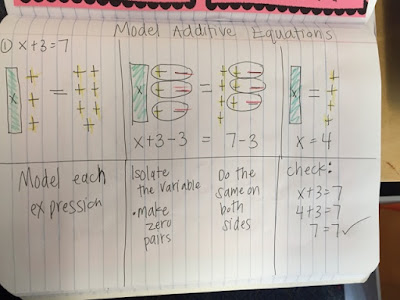 Model Additive Equations
① x+3=7
x + + + = + + + + + + +
x + - + - + - = + + + + + - + - + -
x = + + + +
x+3-3 = 7-3
x = 4
Model each
expression
Isolate
the variable
• make
zero
pairs
Do the
same on
both
sides
check:
x+3=7
4+3=7
7=7 ✓